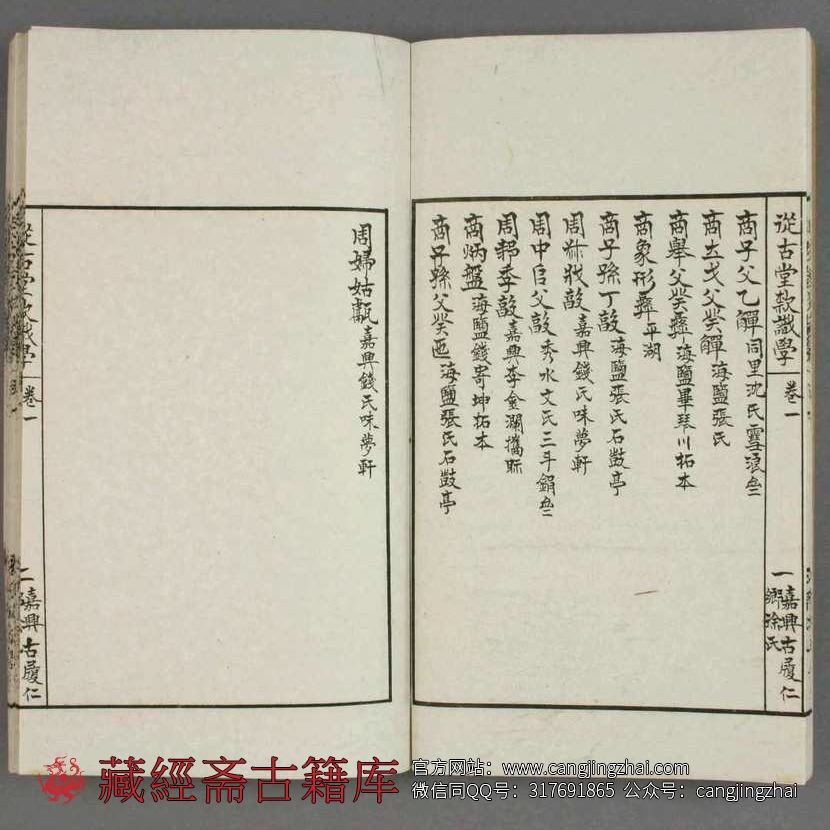 從古堂款識學 卷一 一 嘉興古履仁鄉徐氏
商子父乙觶 同里沈氏雪浪盦
商立戈父癸觶 海鹽張氏
商舉父癸彝 海鹽畢琴川拓本
商象形彝 平湖
商子孫丁敦 海鹽張氏石鼓亭
周敦 嘉興錢氏味夢軒
周中父敦 秀水文氏三斗鋗盦
周季敦 嘉興李金瀾攜眎
商炳盤 海鹽錢寄坤拓本
商子孫父癸匜 海鹽張氏石鼓亭
周婦姑甗 嘉興錢氏味夢軒
從古堂款識學 卷一 二 嘉興古履仁
藏經斋古籍库
官方网站：www.cangjingzhai.com
微信同QQ号：317691865 公众号：cangjingzhai